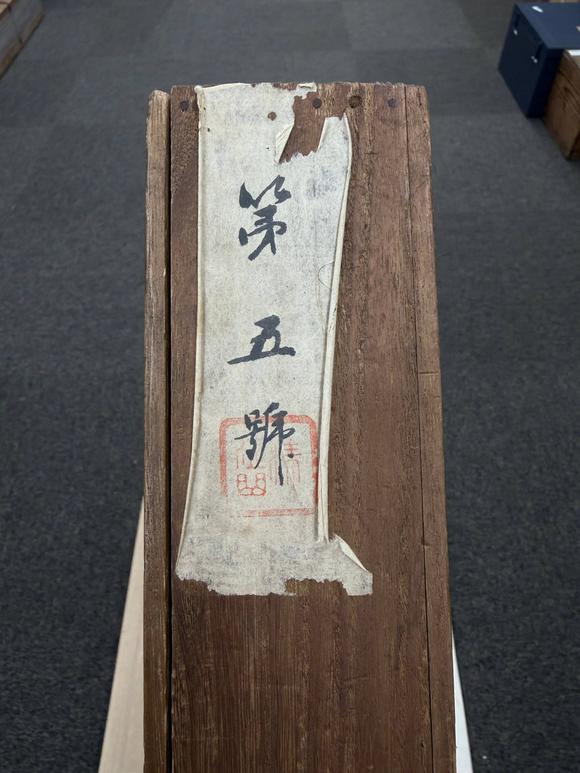 第五號